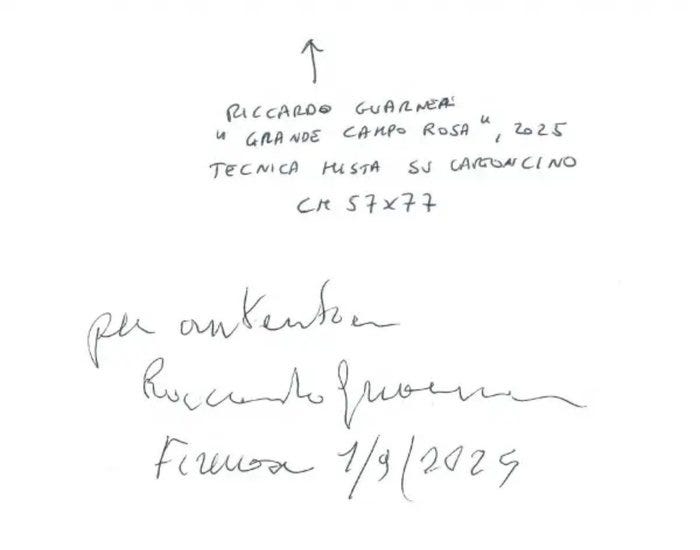 RICCARDO GUARNERI
"GRANDE CAMPO ROSA", 2025
TECNICA MISTA SU CARTONCINO
CM 57x77
per autentica
Riccardo Guarneri
Firenze 1/9/2025